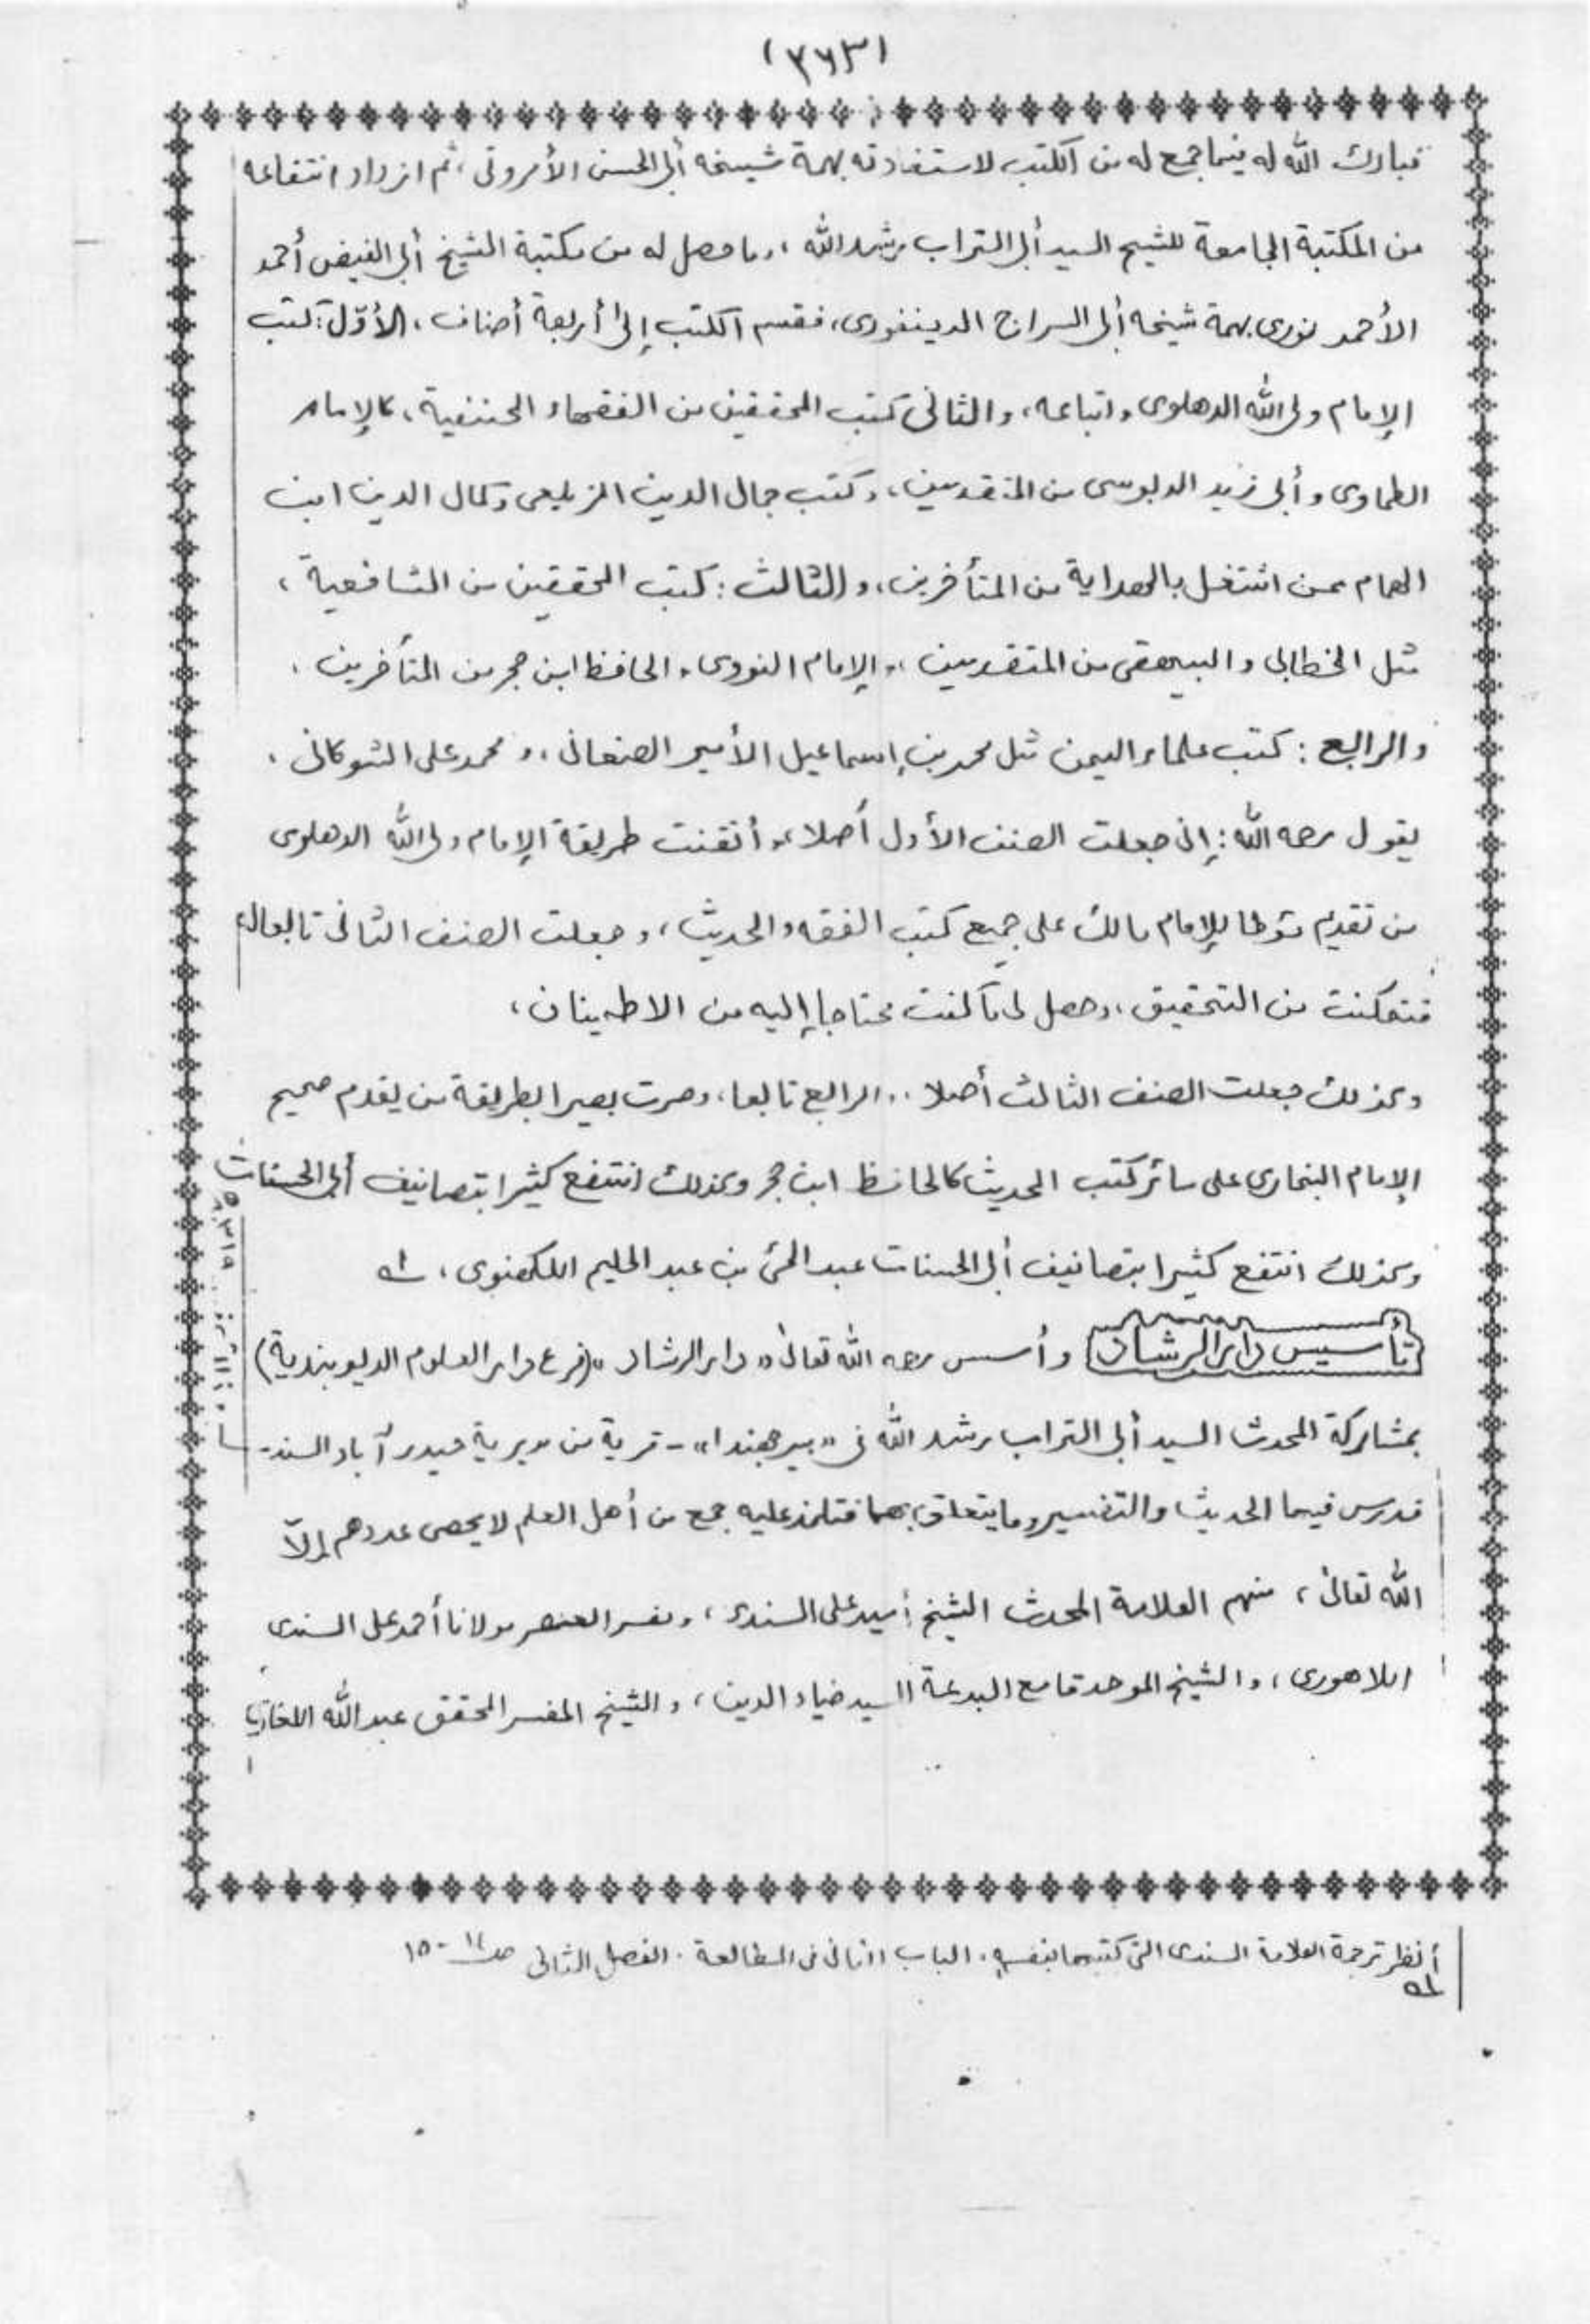 (٣٦٣)
فبارك الله له فيما جمع له من الكتب لاستفادته بهمة شيخه أبى الحسن الأمروتى، ثم ازداد انتفاعه
من المكتبة الجامعة للشيخ السيد أبى التراب رشد الله، وما حصل له من مكتبة الشيخ أبى الفيض أحمد
الأحمد نورى بهمة شيخه أبى السراج الدينفورى، فقسم الكتب إلى أربعة أصناف، الأوّل: كتب
الإمام ولى الله الدهلوى واتباعه، والثانى كتب المحققين من الفقهاء الحنفية، كالإمام
الطحاوى وأبى زيد الدبوسى من المتقدمين، وكتب جمال الدين الزيلعى وكمال الدين ابن
الهمام ممن اشتغل بالهداية من المتأخرين، والثالث: كتب المحققين من الشافعية،
مثل الخطابى والبيهقى من المتقدمين، والإمام النووى، الحافظ ابن حجر من المتأخرين،
والرابع: كتب علماء اليمن مثل محمد بن إسماعيل الأمير الصنعانى، ومحمد على الشوكانى،
يقول رحمه الله: إنى جعلت الصنف الأول أصلا، وأتقنت طريقة الإمام ولى الله الدهلوى
من تقديم مؤطا للإمام مالك على جميع كتب الفقه والحديث، وجعلت الصنف الثانى تابعا له
فتمكنت من التحقيق، وحصل لى ما كنت محتاجا إليه من الاطمينان،
وكذلك جعلت الصنف الثالث أصلا، والرابع تابعا، وصرت بصيرا بطريقة من يقدم صحيح
الإمام البخارى على سائر كتب الحديث كالحافظ ابن حجر وكذلك انتفع كثيرا بتصانيف أبى الحسنات
وكذلك انتفع كثيرا بتصانيف أبى الحسنات عبد الحئ بن عبد الحليم اللكهنوى، ـ١ـه
تأسيس دار الرشاد وأسس رحمه الله تعالىٰ «دار الرشاد» (فرع دار العلوم الديوبندية)
بمشاركة المحدث السيد أبى التراب رشد الله فى «بير جهندا» - قرية من مديرية حيدر آباد السند -
فدرس فيها الحديث والتفسير وما يتعلق بهما فتلمذ عليه جمع من أهل العلم لا يحصى عددهم إلاّ
الله تعالىٰ، منهم العلامة المحدث الشيخ أميد على السندى، ومفسر العصر مولانا أحمد على السندى
اللاهورى، والشيخ الموحد قامع البدعة السيد ضياء الدين، والشيخ المفسر المحقق عبد الله اللغارى
أنظر ترجمة العلامة السندى التى كتبها بنفسه، الباب الثانى فى المطالعة. الفصل الثانى صـ١٤-١٥